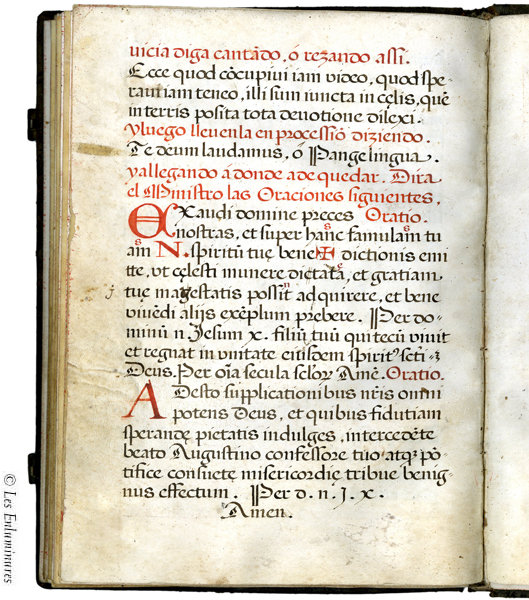 uicia diga cantãdo, ó rezando assi.
Ecce quod cõcupiui iam video, quod spe-
raui iam teneo, illi sum iuncta in cęlis, què
in terris posita tota deuotione dilexi.
Y luego lleuenla en processiõ diziendo.
Te deum laudamus, ó Pange lingua.
y allegando á donde a de quedar. Dira
el Ministro las Oraciones siguientes.
EXaudi domine preces Oratio.
nostras, et super hanc famulam tu
am N. spiritũ tuę bene ✠ dictionis emi
tte, vt cęlesti munere dictata, et gratiam
j tuę magestatis possit ad quirere, et bene
viuẽdi alijs exẽplum prębere. Per do-
minũ n Jesum x. filiũ tuũ qui tecũ viuit
et regnat in vnitate eiusdem spirit' scti. ꝫ
Deus. Per oĩa secula selor Amẽ. Oratio.
ADesto supplicationibus nris omni
potens Deus, et quibus fidutiam
sperandę pietatis indulges, intercedẽte
beato Augustino confessore tuo atq põ
tifice consuetę misericordię tribue benig
nus effectum. Per d. n. J. x.
Amen.
© Les Enluminures